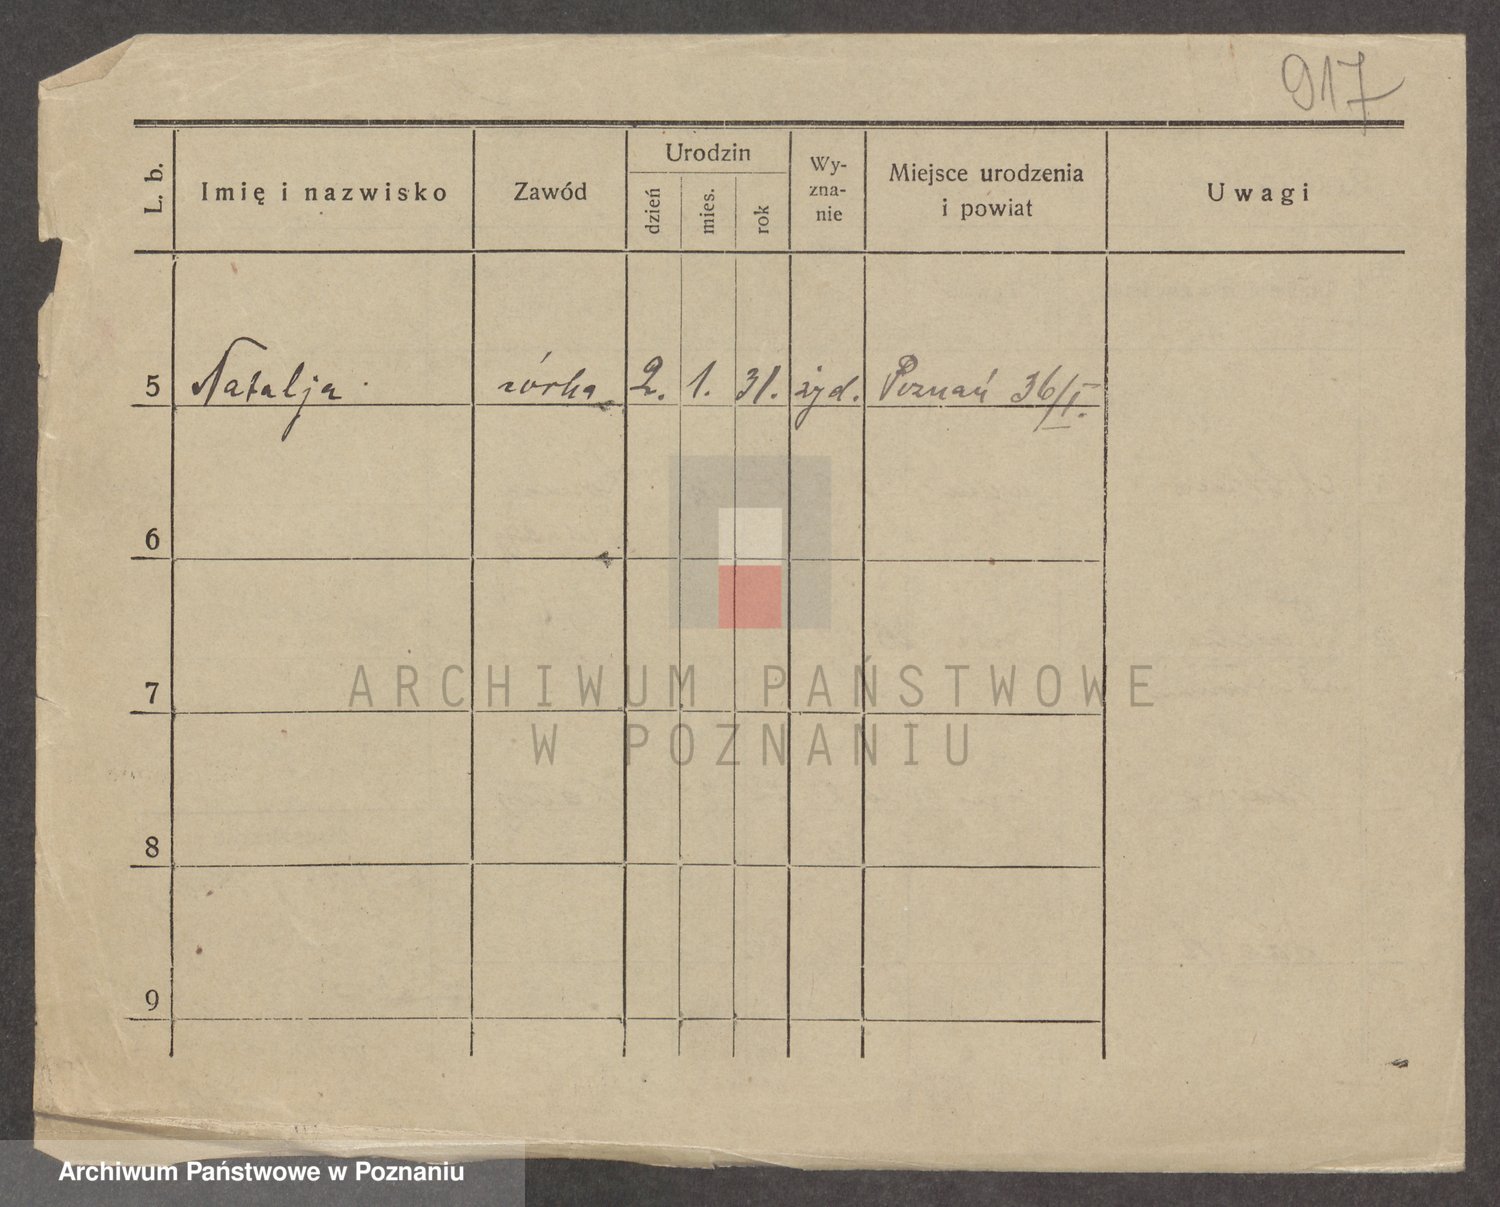 917
L. b.
Imię i nazwisko
Zawód
Urodzin
dzień
mies.
rok
Wy-
zna-
nie
Miejsce urodzenia
i powiat
Uwagi
5 Natalja córka 2. 1. 31. żyd. Poznań 36/I.
6
7
8
9
ARCHIWUM PAŃSTWOWE
W POZNANIU
Archiwum Państwowe w Poznaniu